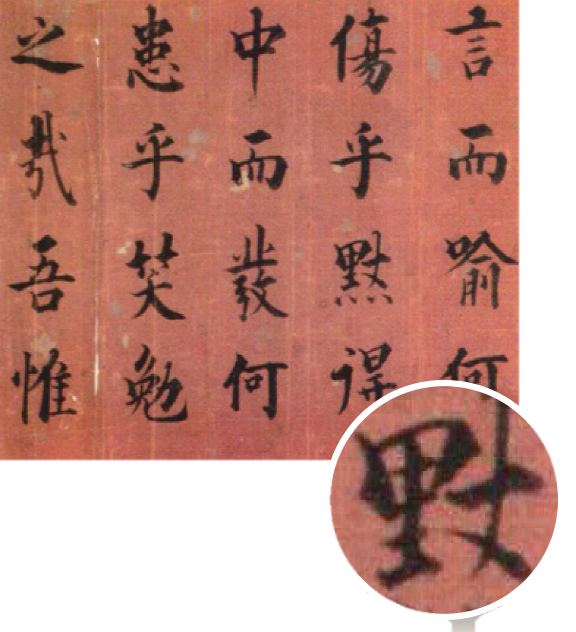 言而喻何
傷乎默得
中而發何
患乎笑勉
之哉吾惟